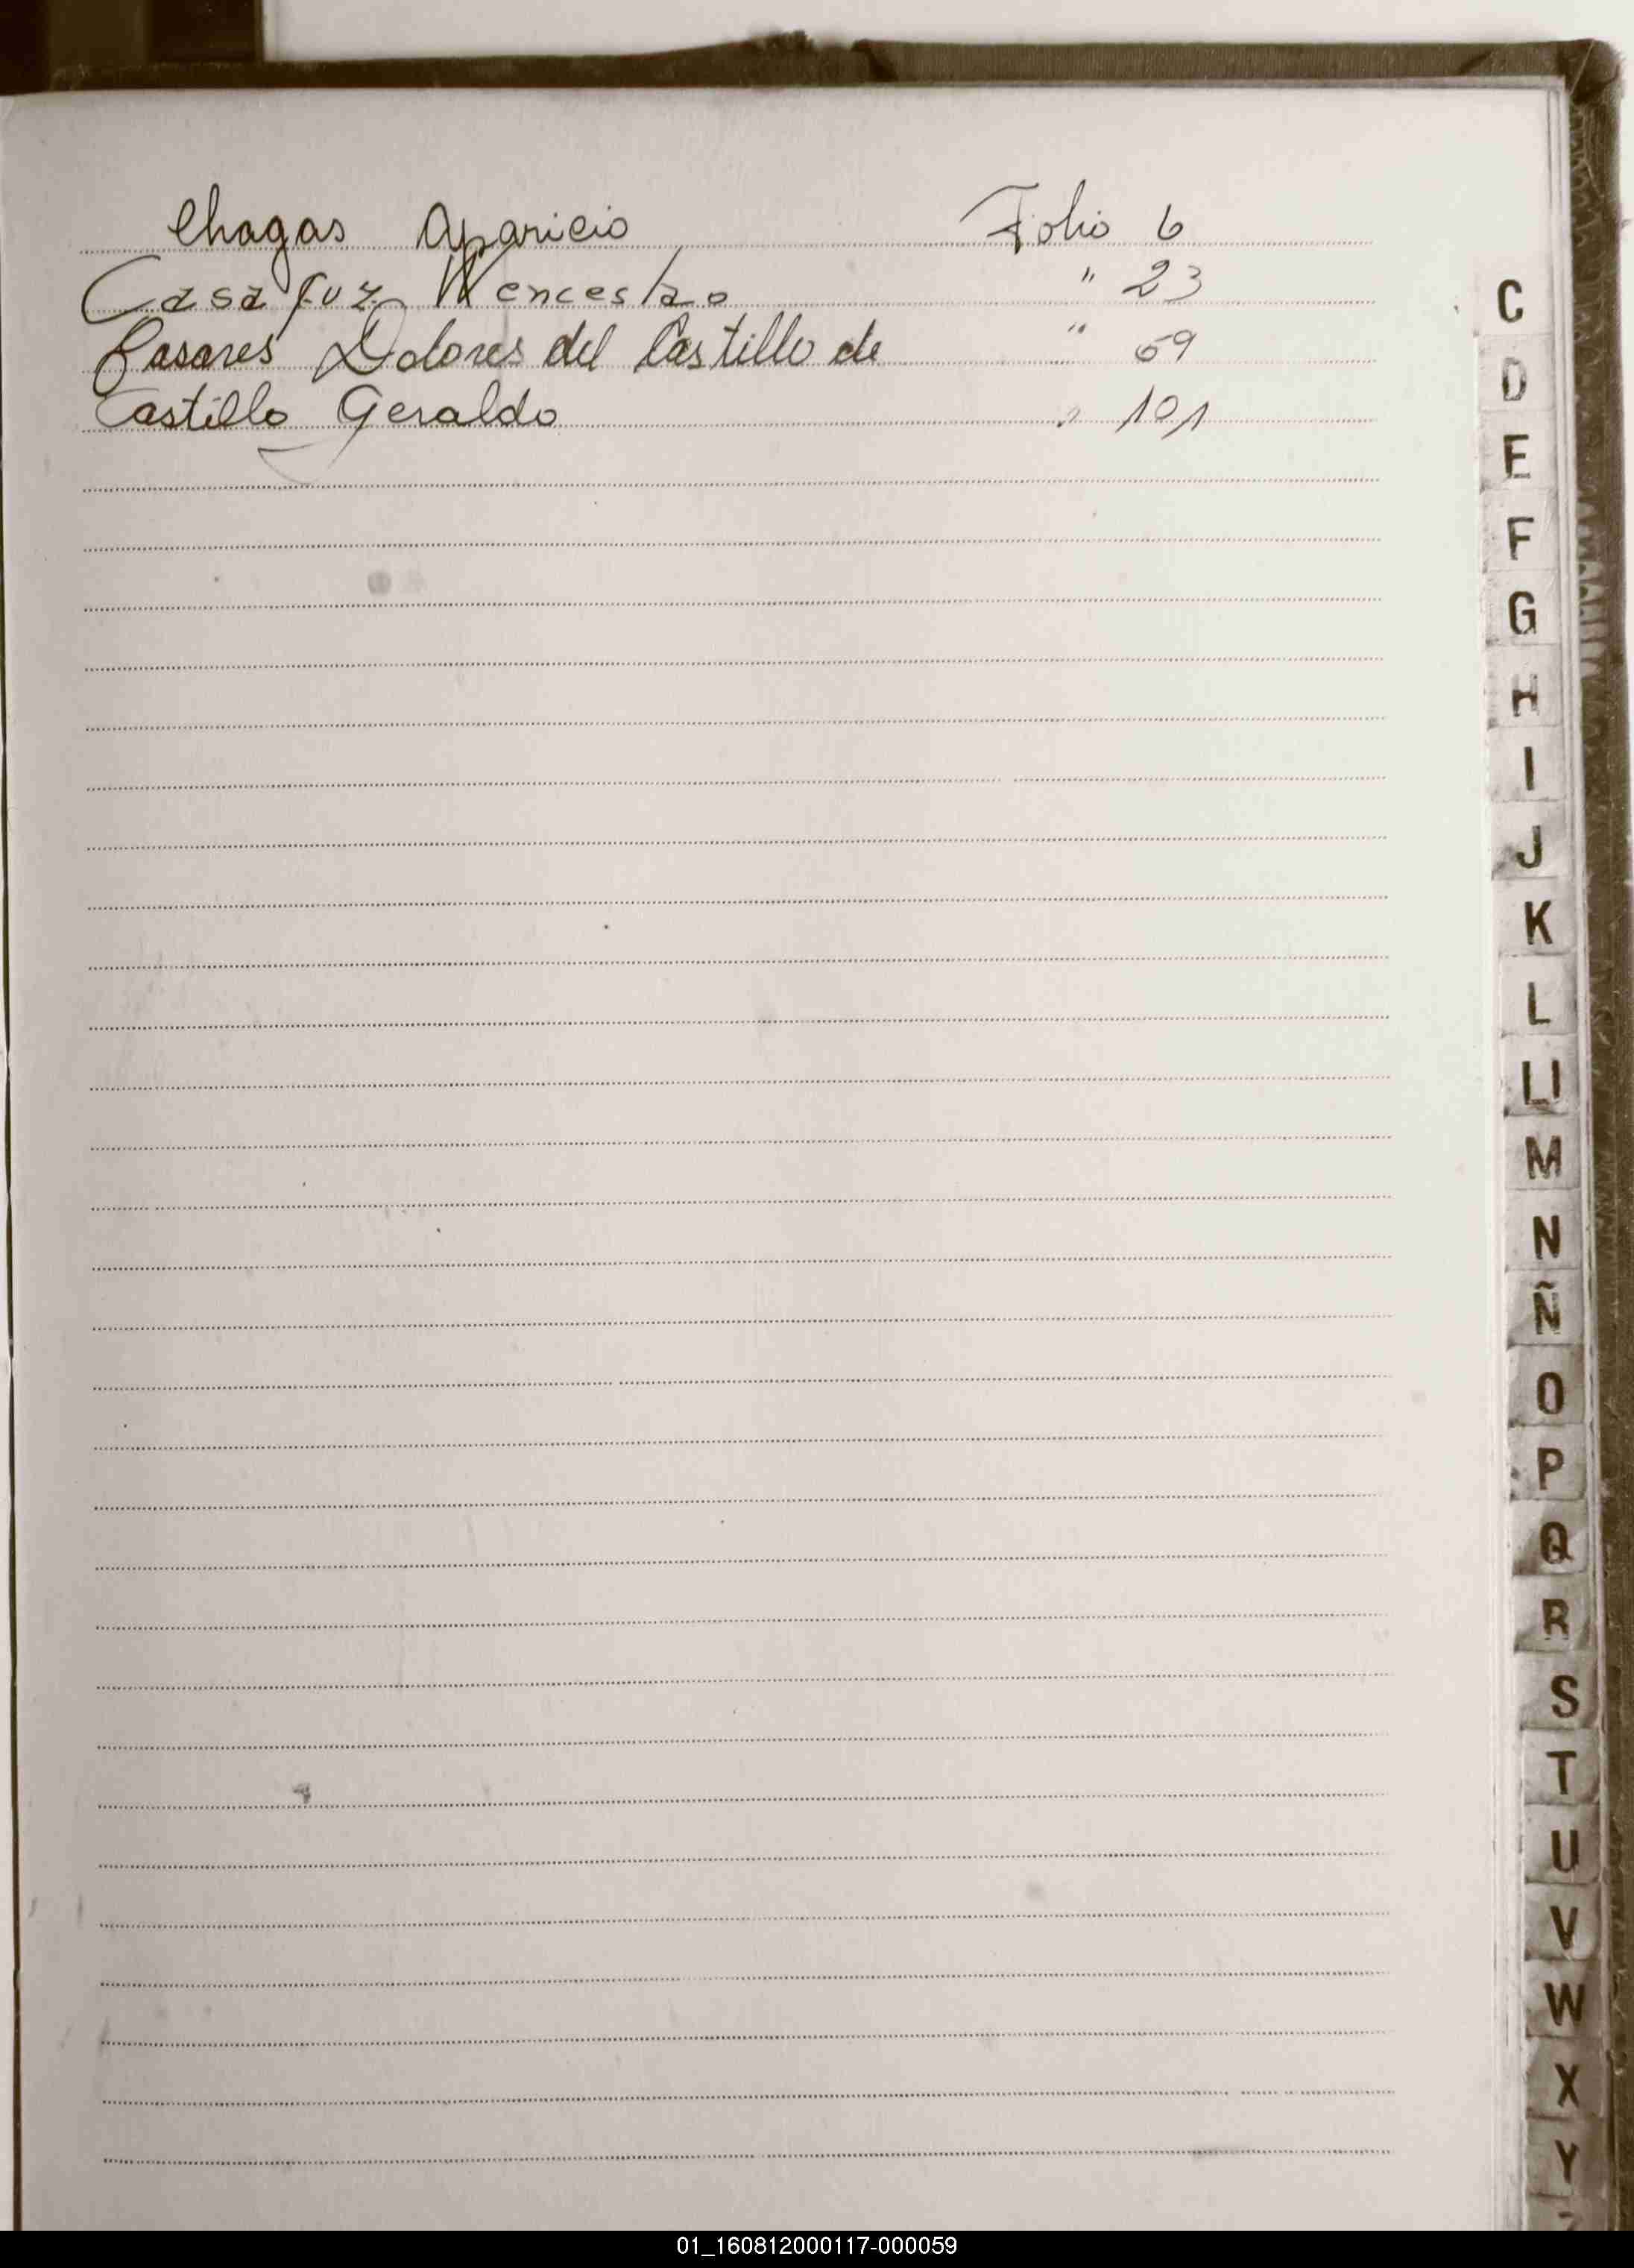 Chagas Aparicio Folio 6
Casafuz Wenceslao " 23
Casares Dolores del Castillo de " 59
Castillo Geraldo " 101
C
D
E
F
G
H
I
J
K
L
Ll
M
N
Ñ
O
P
Q
R
S
T
U
V
W
X
Y
01_160812000117-000059